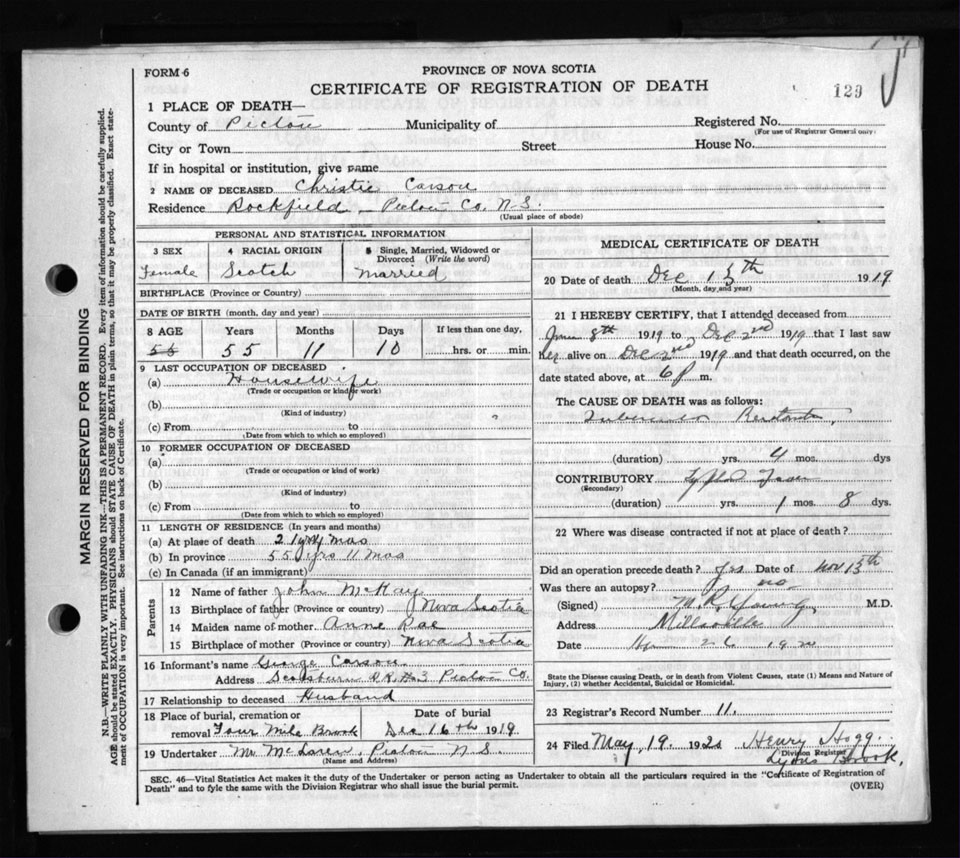 FORM 6
PROVINCE OF NOVA SCOTIA
CERTIFICATE OF REGISTRATION OF DEATH
129
1 PLACE OF DEATH—
County of Pictou Municipality of Registered No.
(For use of Registrar General only)
City or Town Street House No.
If in hospital or institution, give name
2 NAME OF DECEASED Christie Carson
Residence Rockfield - Pictou Co. N.S.
(Usual place of abode)
PERSONAL AND STATISTICAL INFORMATION
3 SEX 4 RACIAL ORIGIN 5 Single, Married, Widowed or Divorced (Write the word)
Female Scotch Married
BIRTHPLACE (Province or Country)
DATE OF BIRTH (month, day and year)
8 AGE Years Months Days If less than one day,
56 55 11 10 hrs. or min.
9 LAST OCCUPATION OF DECEASED
(a) Housewife
(Trade or occupation or kind of work)
(b)
(Kind of industry)
(c) From to
(Date from which to which so employed)
10 FORMER OCCUPATION OF DECEASED
(a)
(Trade or occupation or kind of work)
(b)
(Kind of industry)
(c) From to
(Date from which to which so employed)
11 LENGTH OF RESIDENCE (In years and months)
(a) At place of death mos
(b) In province 55 yrs 11 mos
(c) In Canada (if an immigrant)
Parents
12 Name of father John McKay
13 Birthplace of father (Province or country) Nova Scotia
14 Maiden name of mother Anne Rae
15 Birthplace of mother (Province or country) Nova Scotia
16 Informant's name George Carson
Address Scotsburn R.R. #3 Pictou Co.
17 Relationship to deceased Husband
18 Place of burial, cremation or Date of burial
removal Four Mile Brook Dec 16th 1919
19 Undertaker Mr McLaren, Pictou N.S.
(Name and Address)
MEDICAL CERTIFICATE OF DEATH
20 Date of death Dec 15th 1919
(Month, day and year)
21 I HEREBY CERTIFY, that I attended deceased from
8th 1919 to Dec 2nd 1919 that I last saw
her alive on Dec 2nd 1919 and that death occurred, on the
date stated above, at 6 p m.
The CAUSE OF DEATH was as follows:
(duration) yrs. 4 mos. dys
CONTRIBUTORY
(Secondary)
(duration) yrs. 1 mos. 8 dys.
22 Where was disease contracted if not at place of death?
Did an operation precede death? yes Date of Nov 15th
Was there an autopsy? no
(Signed) M R Young M.D.
Address Millsville
Date 26 1920
State the Disease causing Death, or in death from Violent Causes, state (1) Means and Nature of
Injury, (2) whether Accidental, Suicidal or Homicidal.
23 Registrar's Record Number 11.
24 Filed May 19 1920 Henry Hogg.
Division Registrar
Lyons Brook.
SEC. 46—Vital Statistics Act makes it the duty of the Undertaker or person acting as Undertaker to obtain all the particulars required in the "Certificate of Registration of
Death" and to fyle the same with the Division Registrar who shall issue the burial permit.
(OVER)
MARGIN RESERVED FOR BINDING
N.B.—WRITE PLAINLY WITH UNFADING INK—THIS IS A PERMANENT RECORD. Every item of information should be carefully supplied.
AGE should be stated EXACTLY. PHYSICIANS should STATE CAUSE OF DEATH in plain terms, so that it may be properly classified. Exact state-
ment of OCCUPATION is very important. See instructions on back of Certificate.